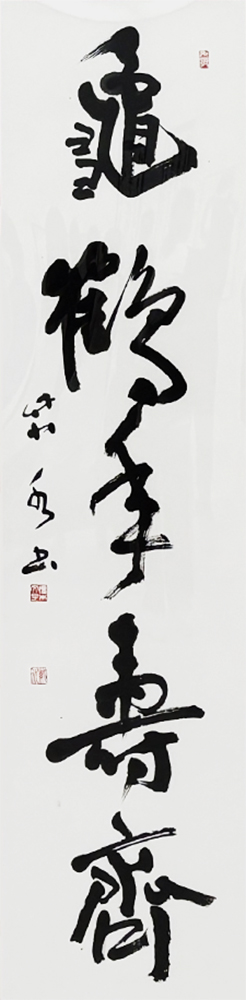 龜鶴年壽齊